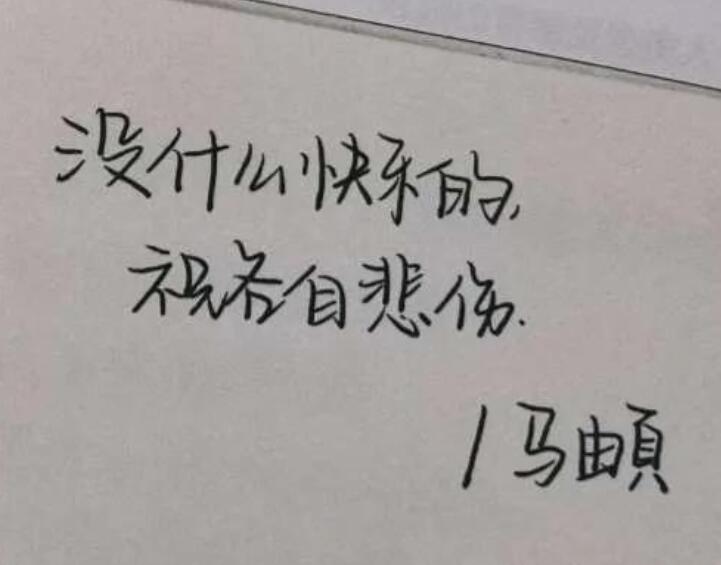 没什么快乐的,
祝各自悲伤.
/马頔